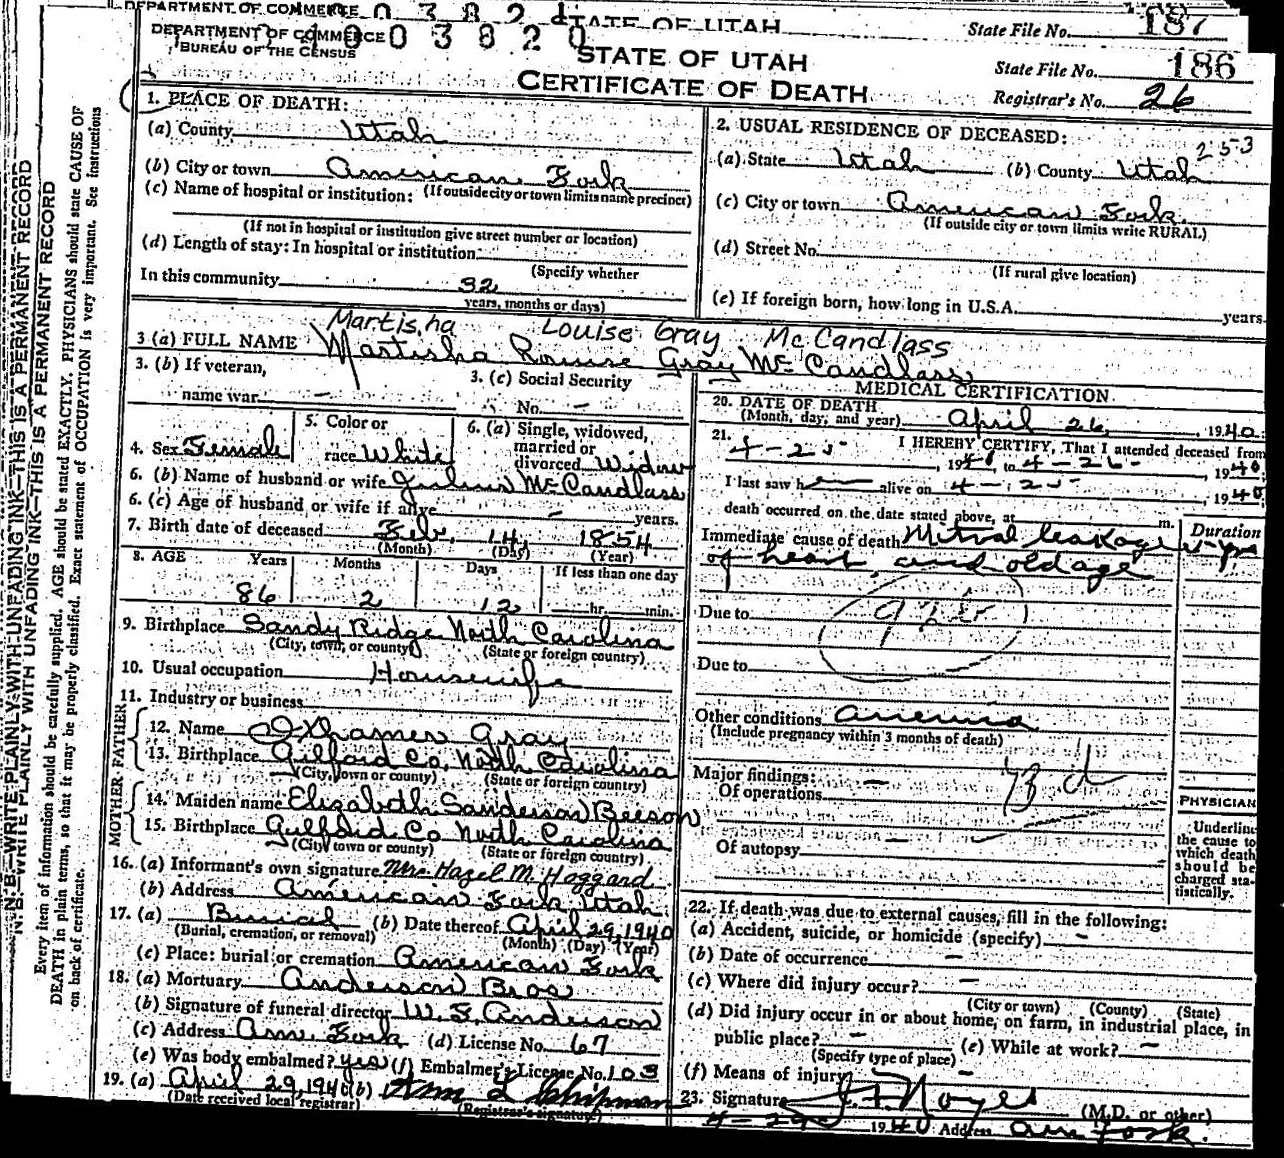 DEPARTMENT OF COMMERCE 0 3 8 2 STATE OF UTAH State File No. 187
DEPARTMENT OF COMMERCE 0 0 3 8 2 0
BUREAU OF THE CENSUS
STATE OF UTAH State File No. 186
CERTIFICATE OF DEATH Registrar's No. 26
N. B.—WRITE PLAINLY WITH UNFADING INK—THIS IS A PERMANENT RECORD
N. B.—WRITE PLAINLY WITH UNFADING INK—THIS IS A PERMANENT RECORD
Every item of information should be carefully supplied. AGE should be stated EXACTLY. PHYSICIANS should state CAUSE OF
DEATH in plain terms, so that it may be properly classified. Exact statement of OCCUPATION is very important. See instructions
on back of certificate.
1. PLACE OF DEATH:
(a) County Utah
(b) City or town American Fork
(If outside city or town limits name precinct)
(c) Name of hospital or institution:
(If not in hospital or institution give street number or location)
(d) Length of stay: In hospital or institution
(Specify whether
In this community 32
years, months or days)
2. USUAL RESIDENCE OF DECEASED:
253
(a) State Utah (b) County Utah
(c) City or town American Fork
(If outside city or town limits write RURAL)
(d) Street No.
(If rural give location)
(e) If foreign born, how long in U.S.A. years
Martisha Louise Gray McCandlass
3 (a) FULL NAME Martisha Louise Gray McCandlass
3. (b) If veteran,
name war –
3. (c) Social Security
No. –
4. Sex Female
5. Color or
race White
6. (a) Single, widowed,
married or
divorced Widow
6. (b) Name of husband or wife Julius McCandlass
6. (c) Age of husband or wife if alive – years.
7. Birth date of deceased Feb. 14, 1854
(Month) (Day) (Year)
8. AGE Years Months Days If less than one day
86 2 12 hr. min.
9. Birthplace Sandy Ridge North Carolina
(City, town, or county) (State or foreign country)
10. Usual occupation Housewife
11. Industry or business
FATHER
12. Name Gray
13. Birthplace Gilford Co. North Carolina
(City, town or county) (State or foreign country)
MOTHER
14. Maiden name Elizabeth Sanderson Beeson
15. Birthplace Gulford Co North Carolina
(City, town or county) (State or foreign country)
16. (a) Informant's own signature Mrs Hazel M. Hoggard
(b) Address American Fork Utah
17. (a) Burial (b) Date thereof April 29, 1940
(Burial, cremation, or removal) (Month) (Day) (Year)
(c) Place: burial or cremation American Fork
18. (a) Mortuary Anderson Bros
(b) Signature of funeral director W. F. Anderson
(c) Address Am. Fork (d) License No. 67
(e) Was body embalmed? yes (f) Embalmer's License No. 103
19. (a) April 29, 1940 (b) Chipman
(Date received local registrar) (Registrar's signature)
MEDICAL CERTIFICATION
20. DATE OF DEATH
(Month, day, and year) April 26, 1940
21. I HEREBY CERTIFY, That I attended deceased from
4-25 , 1940, to 4-26- , 1940
I last saw her alive on 4-25- , 1940
death occurred on the date stated above, at m.
Duration
Immediate cause of death Mitral leakage
of heart, and old age
Due to
Due to
Other conditions anemia
(Include pregnancy within 3 months of death)
Major findings: –
Of operations 73 d
PHYSICIAN
Underline
the cause to
which death
should be
charged sta-
tistically.
Of autopsy –
22. If death was due to external causes, fill in the following:
(a) Accident, suicide, or homicide (specify) –
(b) Date of occurrence –
(c) Where did injury occur? –
(City or town) (County) (State)
(d) Did injury occur in or about home, on farm, in industrial place, in
public place? – (e) While at work? –
(Specify type of place)
(f) Means of injury –
23. Signature Noyes
(M.D. or other)
4-29 1940 Address Am Fork.